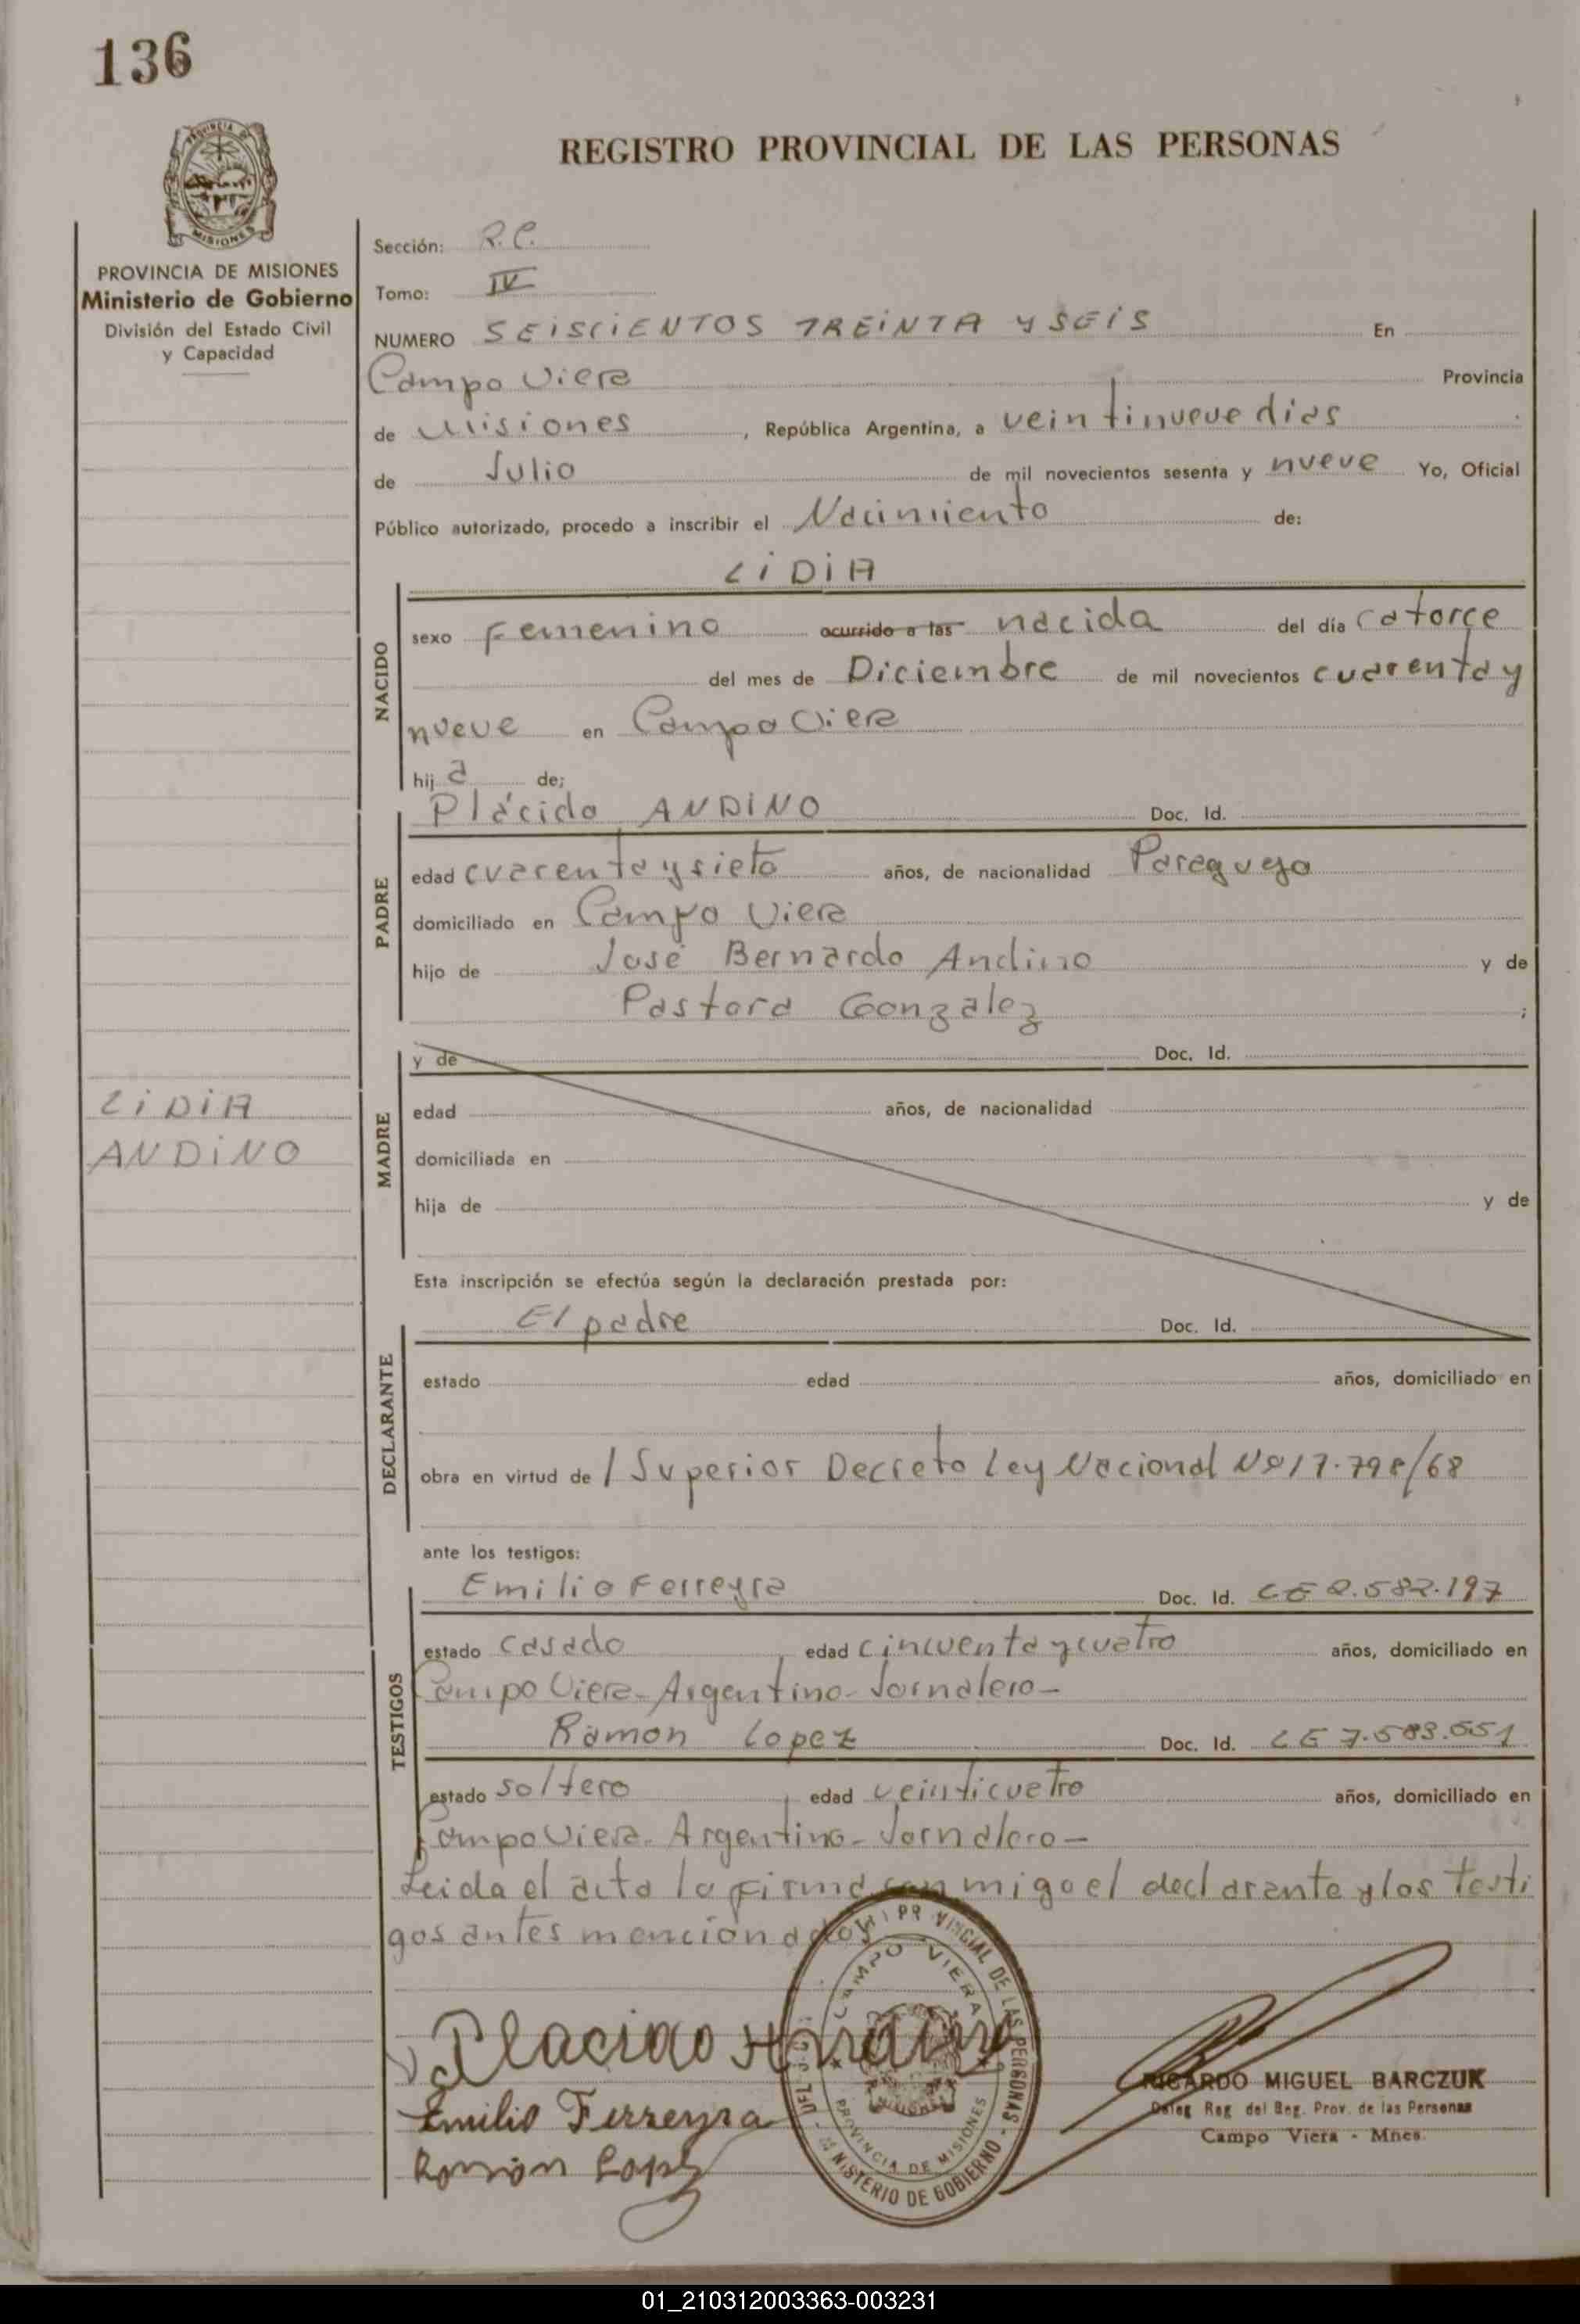 136
REGISTRO PROVINCIAL DE LAS PERSONAS
PROVINCIA DE MISIONES
Ministerio de Gobierno
División del Estado Civil
y Capacidad
Sección: R.C.
Tomo: IV
NUMERO SEISCIENTOS TREINTA Y SEIS En
Campo Viera Provincia
de Misiones, República Argentina, a veintinueve dias
de Julio de mil novecientos sesenta y nueve Yo, Oficial
Público autorizado, procedo a inscribir el Nacimiento de:
LIDIA
NACIDO
sexo Femenino ocurrido a las nacida del día catorce
del mes de Diciembre de mil novecientos cuarenta y
nueve en Campo Viera
hij a de;
Plácido ANDINO Doc. Id.
PADRE
edad cuarenta y siete años, de nacionalidad Paraguayo
domiciliado en Campo Viera
hijo de José Bernardo Andino y de
Pastora Gonzalez ;
y de Doc. Id.
LIDIA
ANDINO
MADRE
edad años, de nacionalidad
domiciliada en
hija de y de
Esta inscripción se efectúa según la declaración prestada por:
El padre Doc. Id.
DECLARANTE
estado edad años, domiciliado en
obra en virtud de / Superior Decreto Ley Nacional Nº 17.798/68
ante los testigos:
Emilio Ferreyra Doc. Id. 2.582.197
TESTIGOS
estado casado edad cincuenta y cuatro años, domiciliado en
Campo Viera - Argentino - Jornalero -
Ramon Lopez Doc. Id. 7.583.551
estado soltero edad veinticuatro años, domiciliado en
Campo Viera - Argentino - Jornalero -
Leida el acta la firma conmigo el declarante y los testi
gos antes mencionados.
Placido Andino
Emilio Ferreyra
Ramón Lopez
PROVINCIAL DE LAS PERSONAS - MINISTERIO DE GOBIERNO
CAMPO VIERA
PROVINCIA DE MISIONES
RICARDO MIGUEL BARCZUK
Deleg Reg del Reg. Prov. de las Personas
Campo Viera - Mnes.
01_210312003363-003231